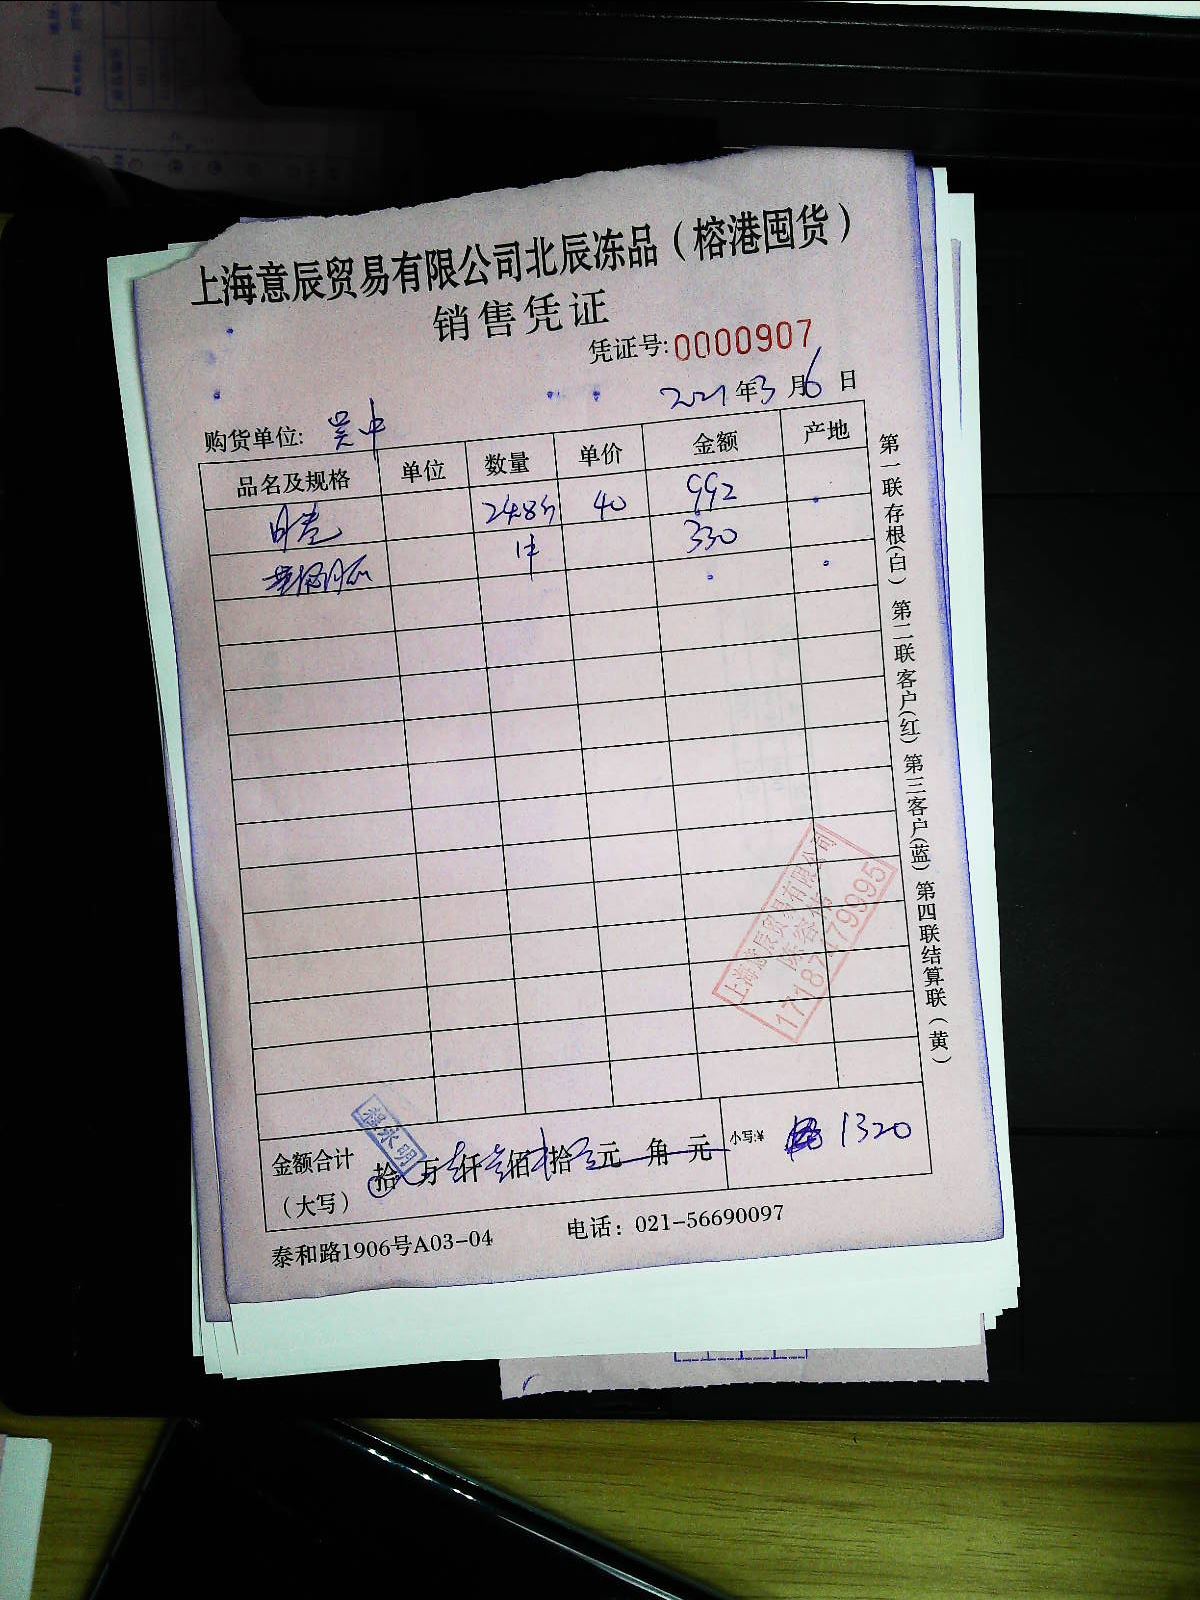 上海意辰贸易有限公司北辰冻品（榕港囤货）
销售凭证
凭证号:0000907
2021年3月6日
购货单位: 吴中
品名及规格 单位 数量 单价 金额 产地
24.8斤 40 992
1件 330
上海意辰贸易有限公司
17187179995
程永明
金额合计（大写） 拾 万 仟 佰 拾 元 角 元 小写:¥ 1320
泰和路1906号A03-04 电话：021-56690097
第一联存根(白) 第二联客户(红) 第三客户(蓝) 第四联结算联（黄）